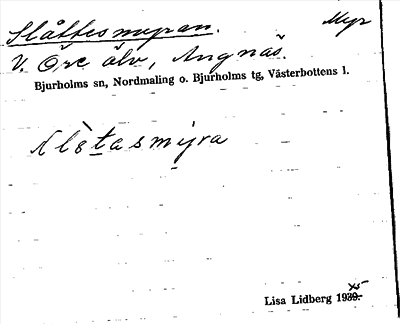 Slåttesmyran. Myr
V. Öre älv, Angnäs.
Bjurholms sn, Nordmaling o. Bjurholms tg, Västerbottens l.
Lisa Lidberg 1939.